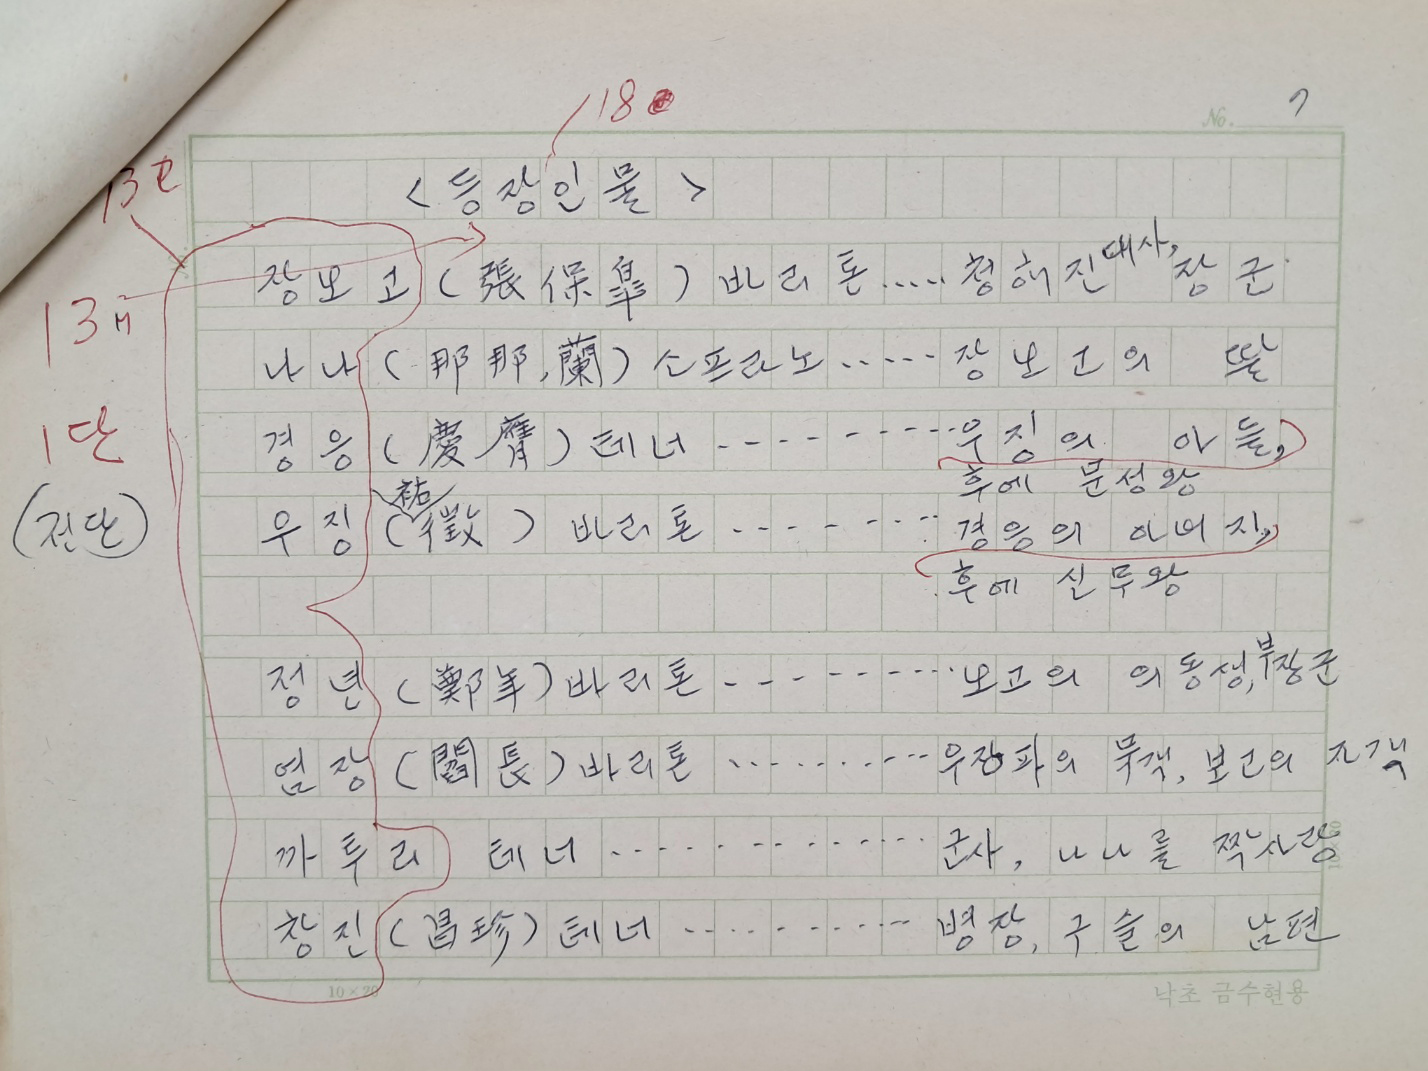 18
No. 7
13
<등장인물>
장보고(張保皐)바리톤.....청해진대사,장군
13
나나(那那,蘭)소프라노.....장보고의 딸
1단
경응(慶膺)테너--------우징의 아들,
후에 문성왕
(전단)
우징(祐徵)바리톤--------경응의 아버지,
후에 신무왕
정년(鄭年)바리톤--------보고의 의동생,부장군
염장(閻長)바리톤........우징파의 묵객, 보고의 자객
까투리 테너............군사, 나나를 짝사랑
창진(昌珍)테너........병장, 구슬의 남편
10×20
10×20
낙초 금수현용